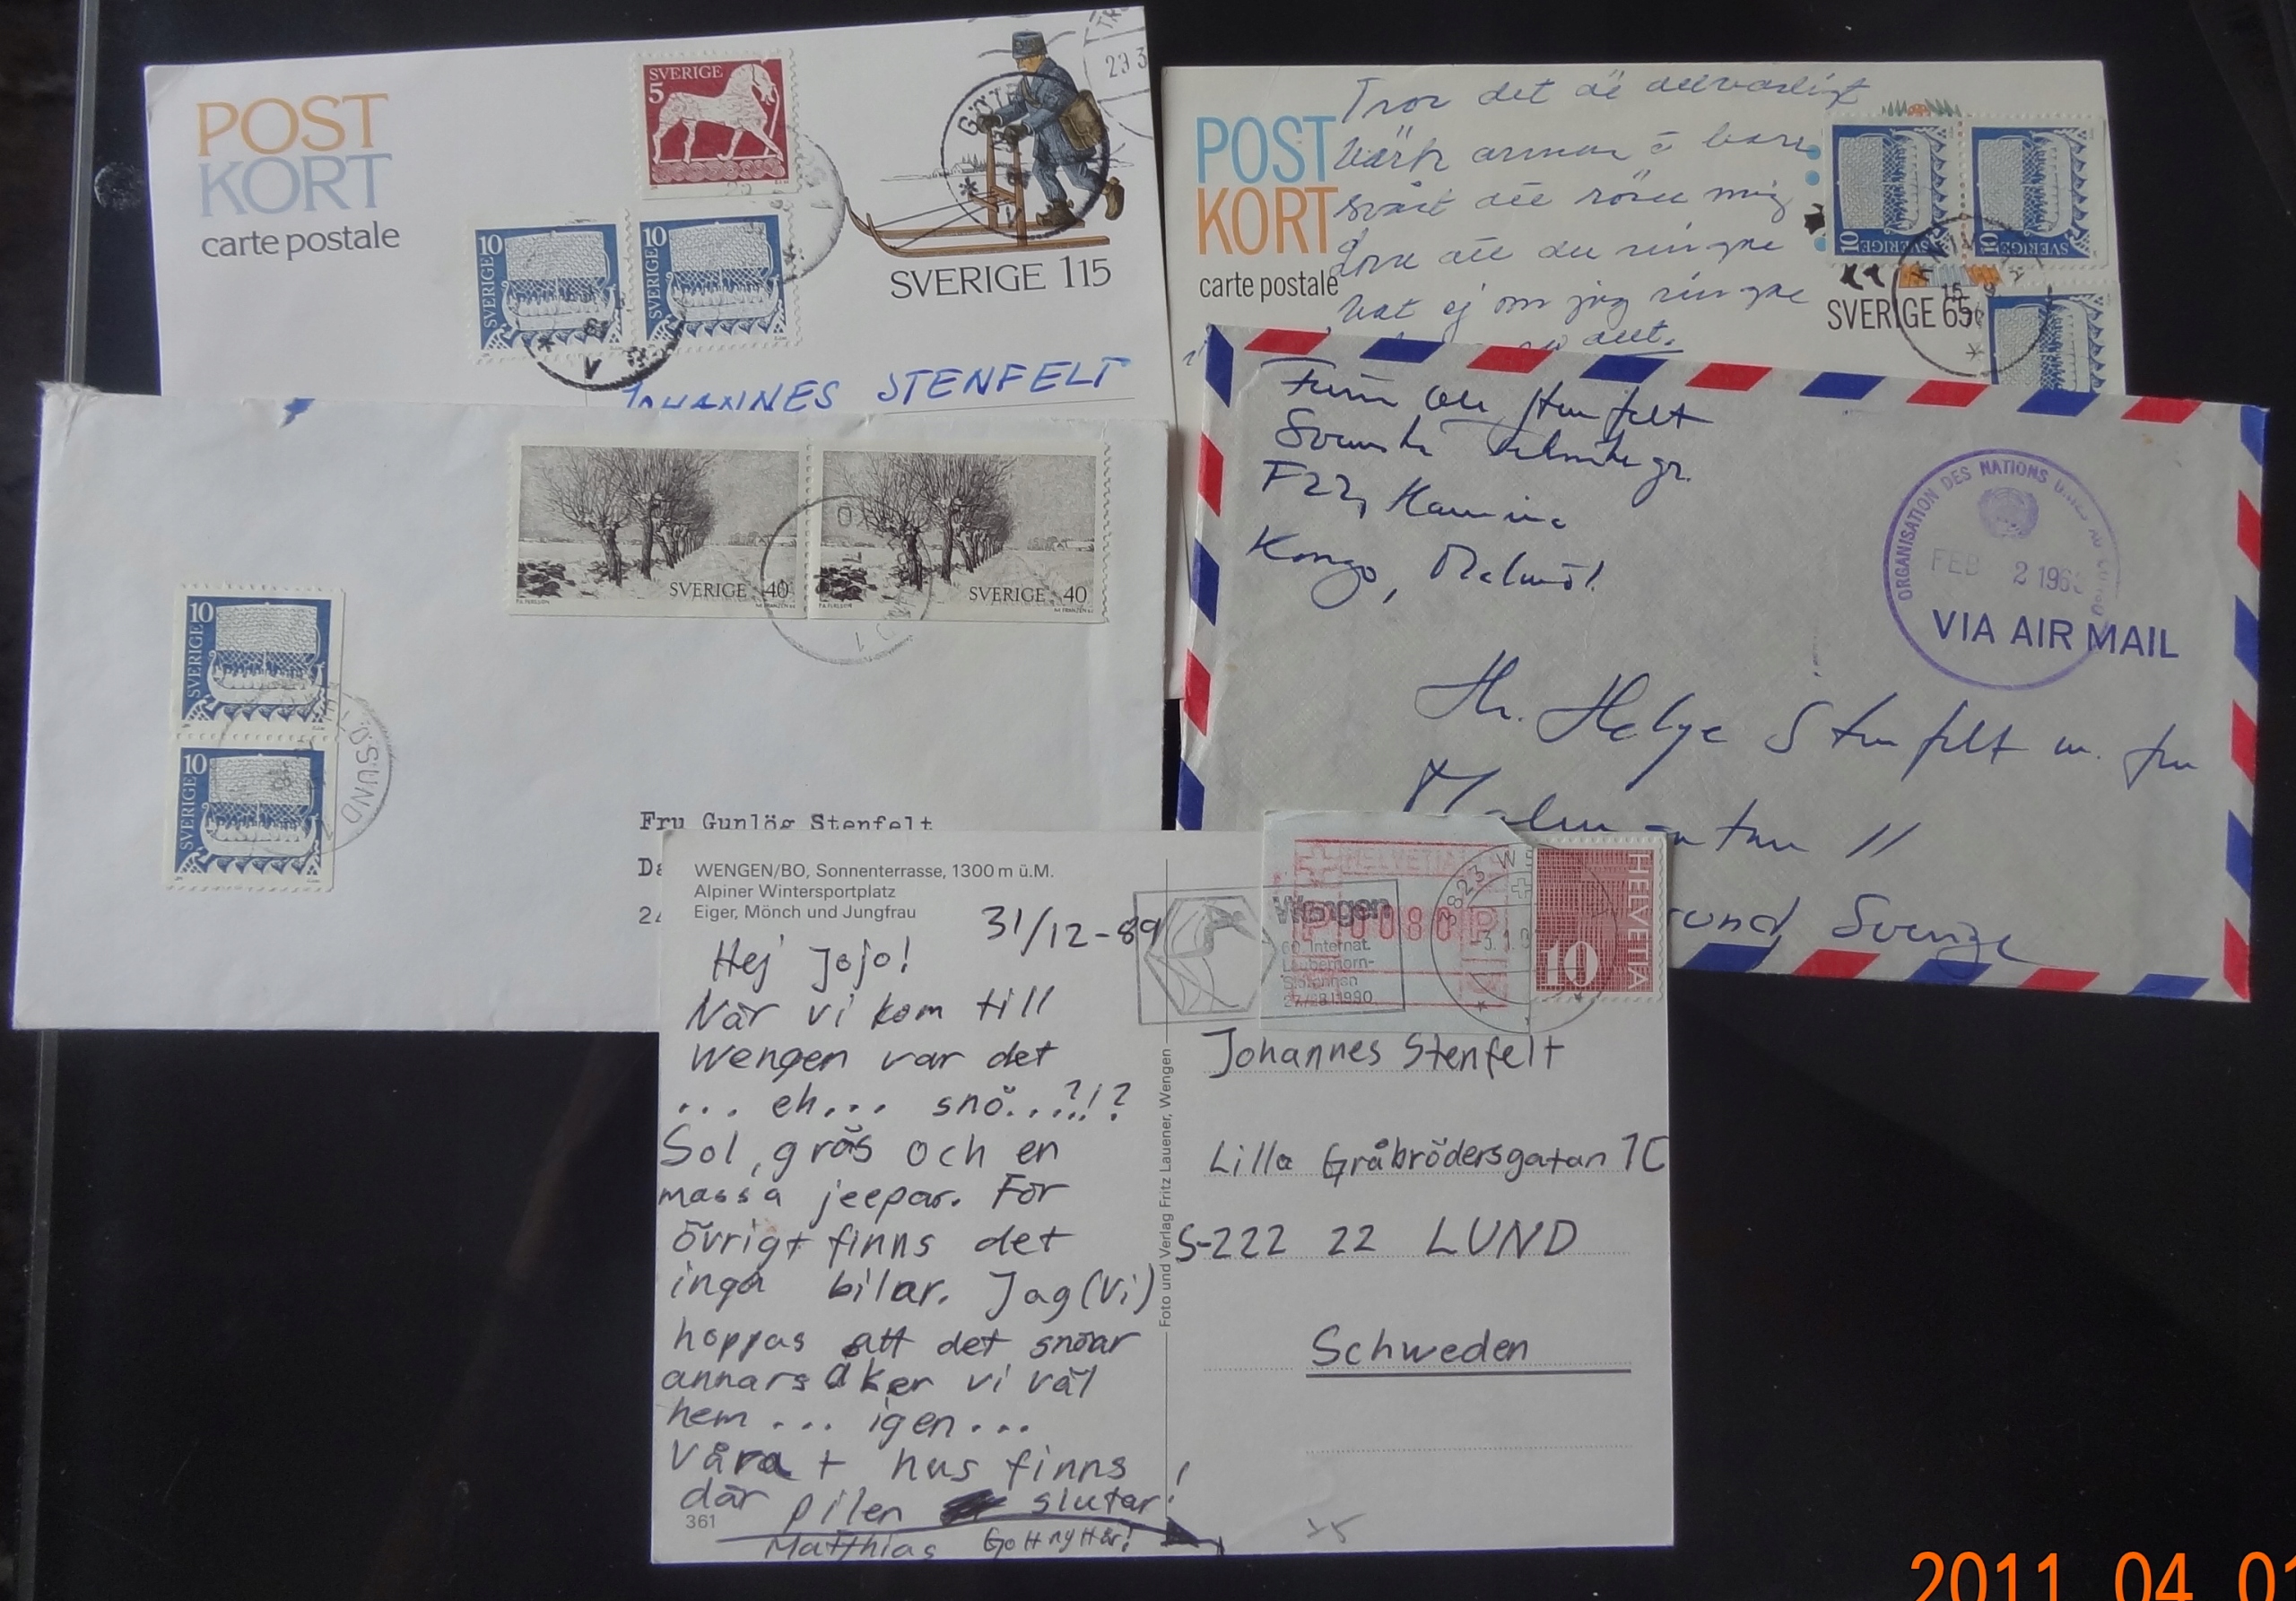 POST
KORT
carte postale
SVERIGE
5
10
SVERIGE
10
SVERIGE
23 3
SVERIGE 115
JOHANNES STENFELT
POST
KORT
carte postale
Tror det
värk armar
svårt att röra mig
att du ringde
ej om jag ringde
10
SVERIGE
10
SVERIGE
SVERIGE 65
15
SVERIGE 40
SVERIGE 40
10
SVERIGE
10
SVERIGE
SUND
Fru Gunlög Stenfelt
Stenfelt
Svenska
F22, Kamina
Kongo,
ORGANISATION DES NATIONS
FEB 2 196
VIA AIR MAIL
Hr. Helge Stenfelt m. fru
11
sund, Sverige
WENGEN/BO, Sonnenterrasse, 1300 m ü.M.
Alpiner Wintersportplatz
Eiger, Mönch und Jungfrau
31/12-89
Hej Jojo!
När vi kom till
Wengen var det
... eh... snö...?!?
Sol, gräs och en
massa jeepar. För
övrigt finns det
inga bilar. Jag (vi)
hoppas att det snöar
annars åker vi väl
hem ... igen...
Våra + hus finns
där pilen slutar!
361
Matthias Gott nytt år!
Foto und Verlag Fritz Lauener, Wengen
HELVETIA
P 0080 P
Wengen
60. Internat.
Lauberhorn-
Skirennen
27/28.1.1990
3823 W
-3.1.
10
HELVETIA
Johannes Stenfelt
Lilla Gråbrödersgatan 1C
S-222 22 LUND
Schweden
2011 04 01